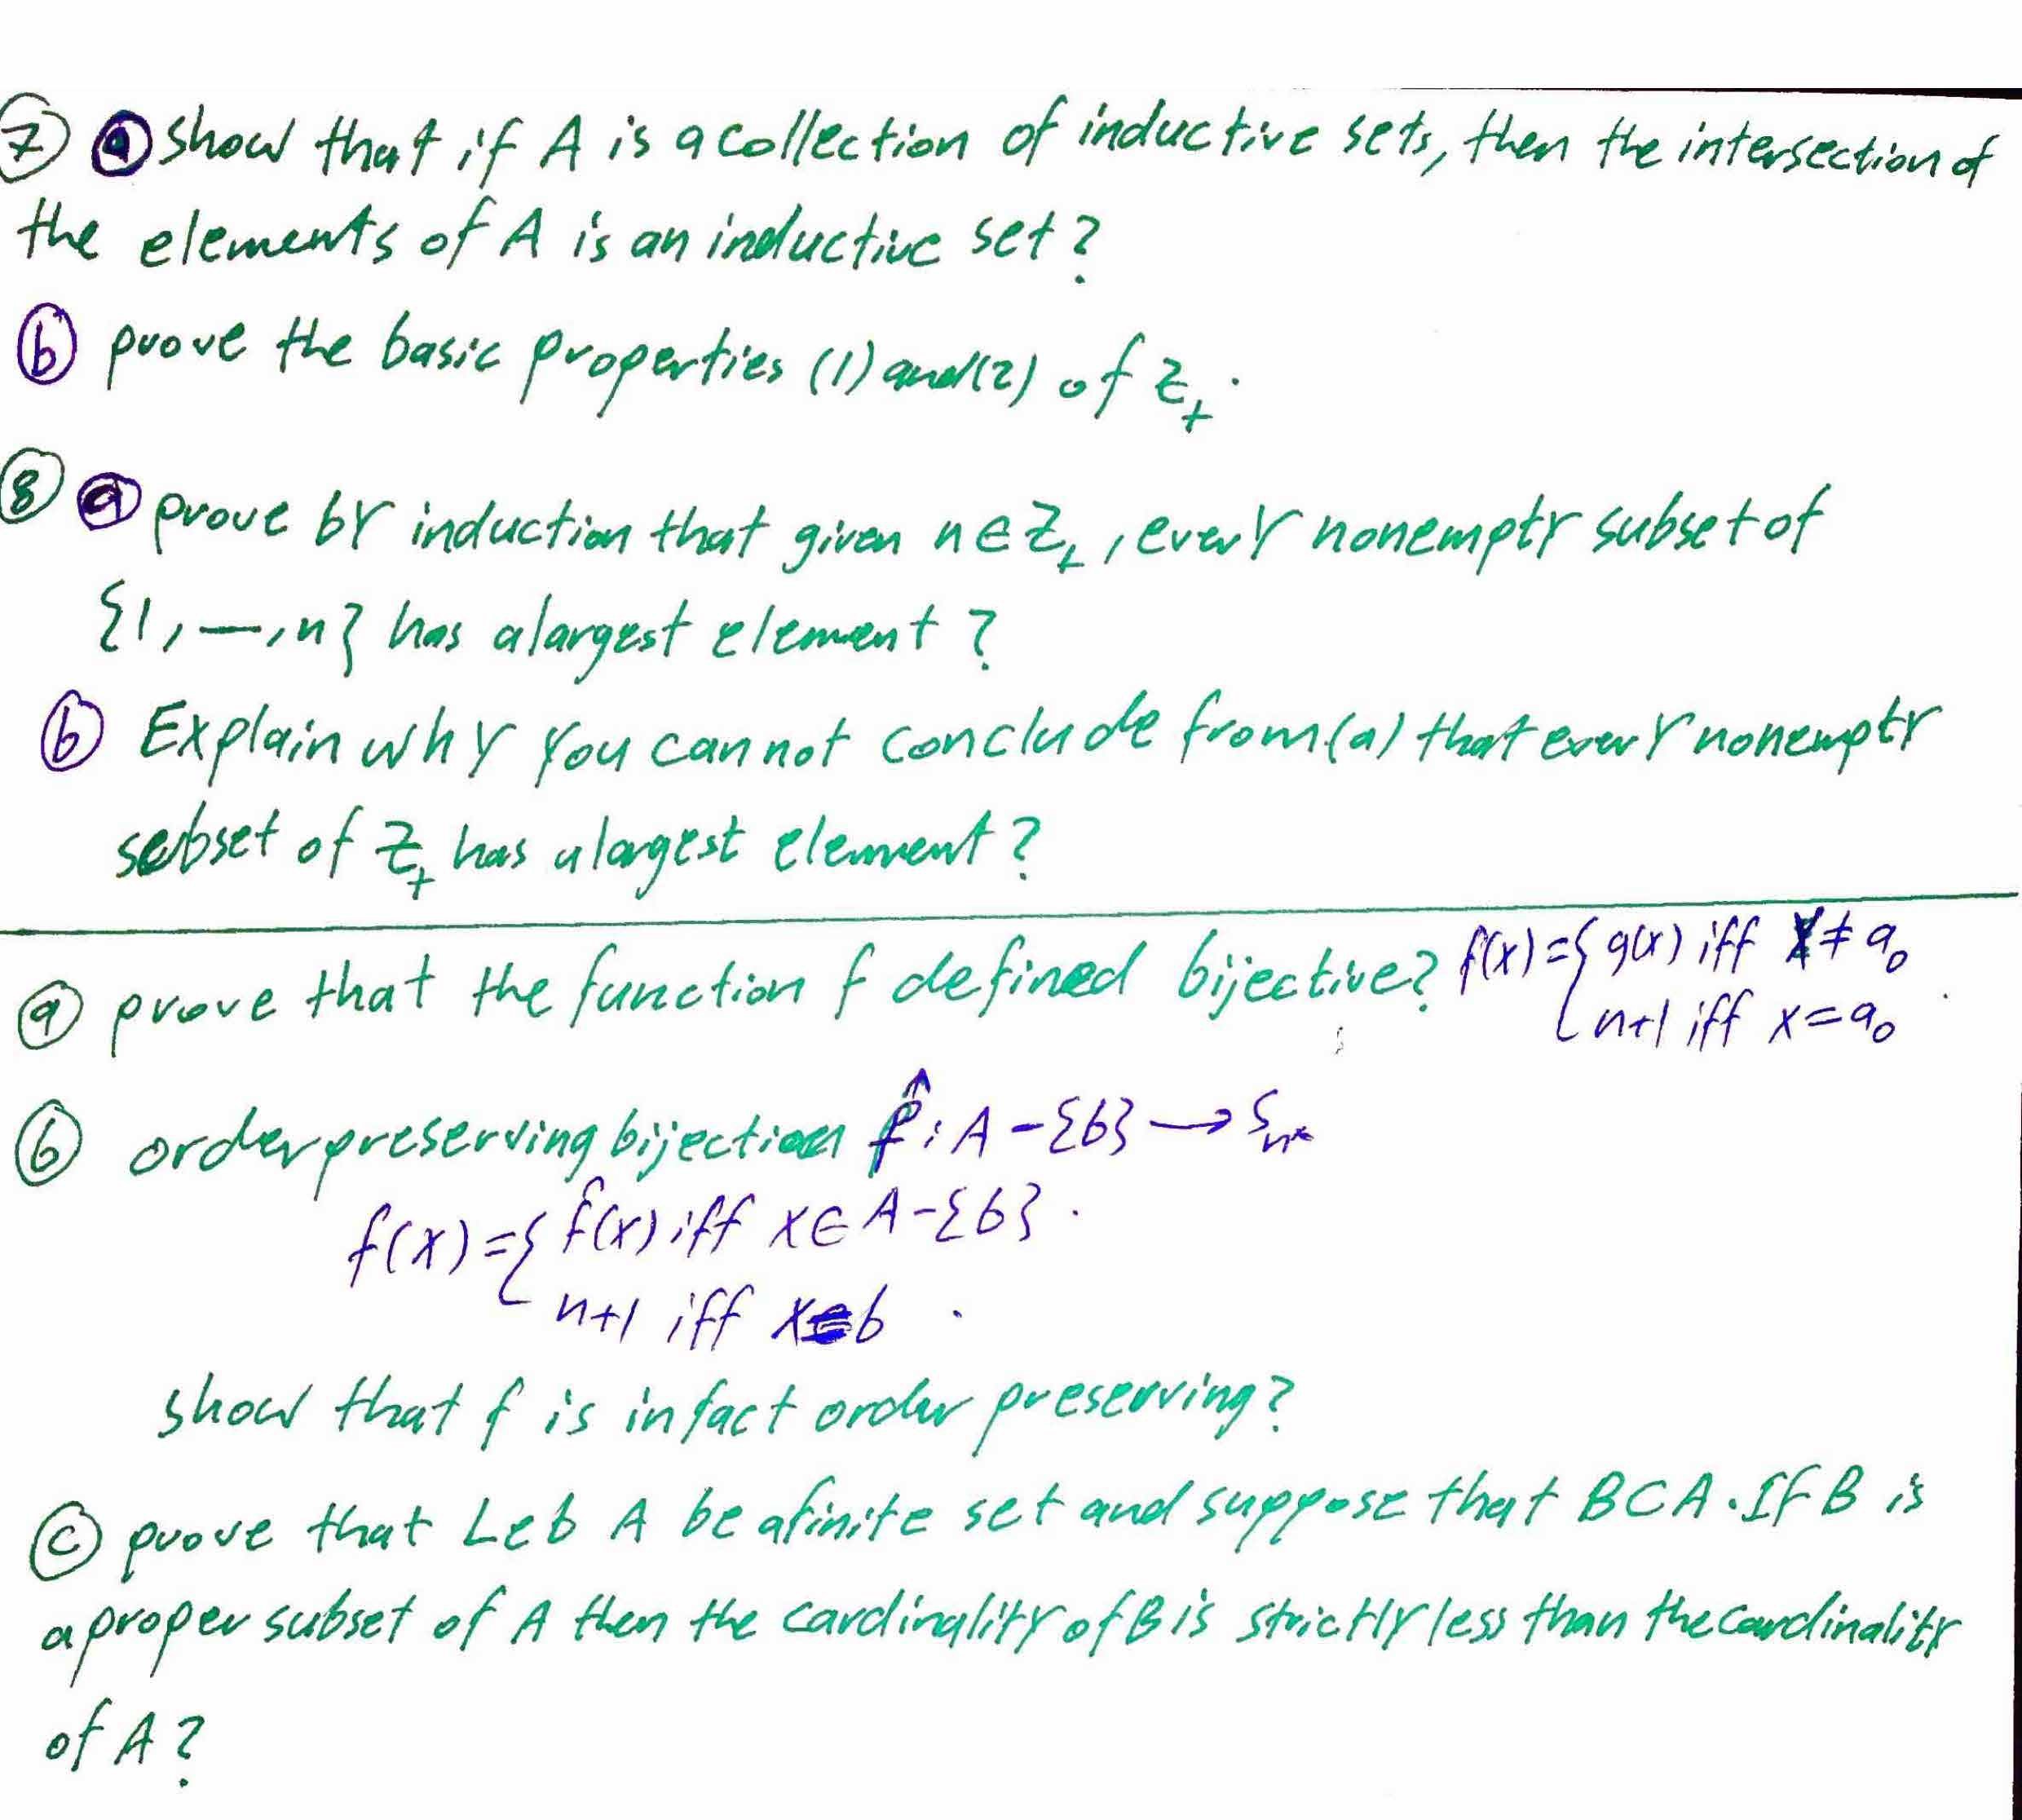 7 a show that if A is a collection of inductive sets, then the intersection of
the elements of A is an inductive set?
b prove the basic properties (1) and (2) of Z₊.
8 a prove by induction that given n∈Z₊, every nonempty subset of
{1,—,n} has a largest element?
b Explain why you can not conclude from (a) that every nonempty
subset of Z₊ has a largest element?
a prove that the function f defined bijective? f(x)={ g(x) iff x≠a₀
n+1 iff x=a₀
b order preserving bijection f̂: A-{b}→Sₙ
f(x)={ f̂(x) iff x∈A-{b}.
n+1 iff x=b.
show that f is in fact order preserving?
c prove that Leb A be a finite set and suppose that B⊂A. If B is
a proper subset of A then the cardinality of B is strictly less than the cardinality
of A?